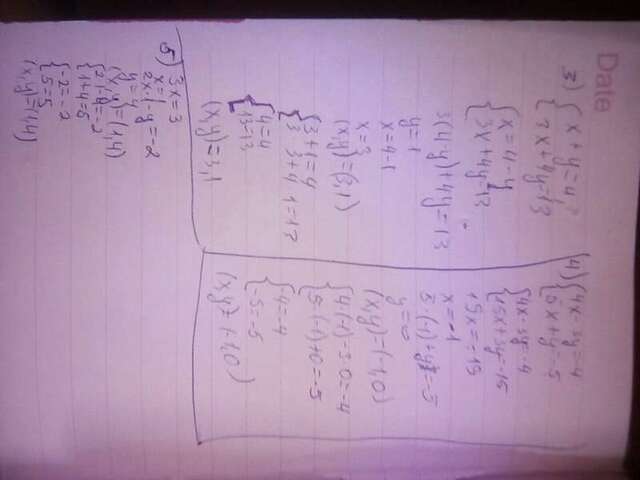 Date
3) { x + y = 4;
{ 3x + 4y = 13
{ x = 4 - y
{ 3x + 4y = 13
3(4-y) + 4y = 13
y = 1
x = 4 - 1
x = 3
(x,y) = (3,1)
{ 3 + 1 = 4
{ 3 3 + 4 1 = 13
{ 4 = 4
{ 13 = 13
(x,y) = 3,1
4) { 4x - 3y = -4
{ 5x + y = -5
{ 4x - 3y = -4
{ 15x + 3y = -15
x = -1
5·(-1) + y = -5
y = 0
(x,y) = (-1,0)
{ 4·(-1) - 3·0 = -4
{ 5·(-1) + 0 = -5
{ -4 = -4
{ -5 = -5
(x,y) = (-1,0)
5) { 3x = 3
y = 4
(x,y) = (1,4)
{ 1 + 4 = 5
{ -2 = -2
{ 5 = 5
(x,y) = (1,4)